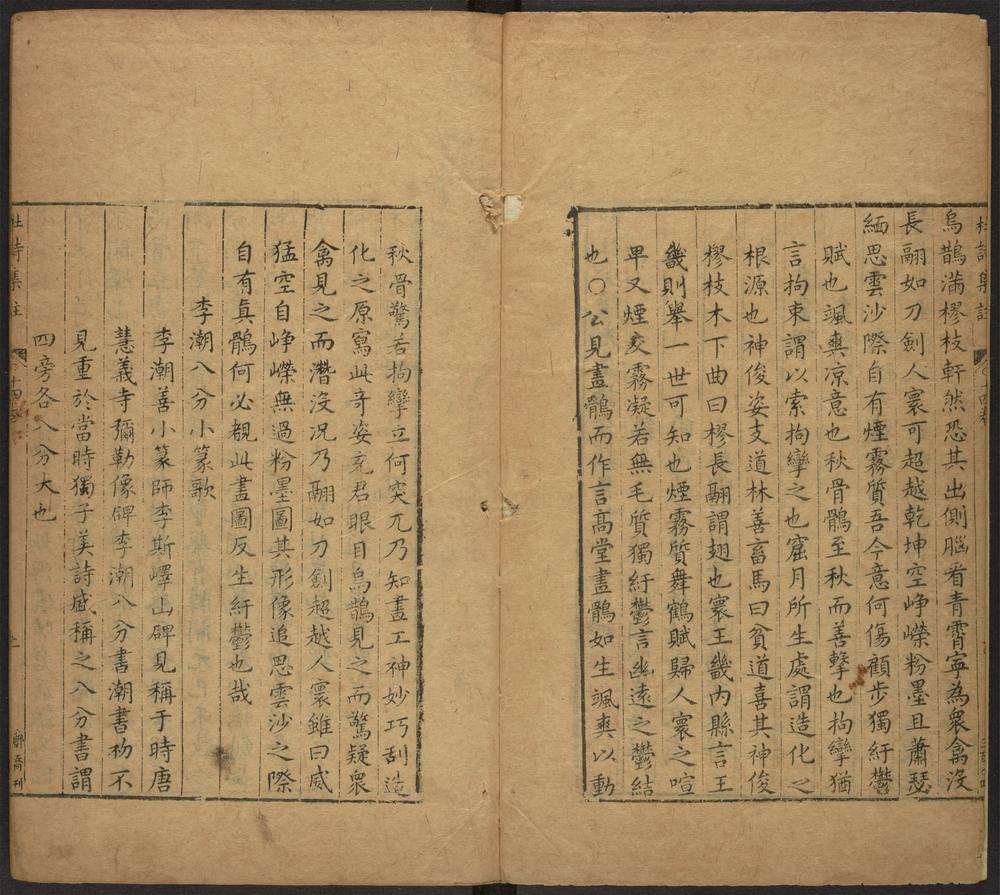 烏鵲滿樛枝軒然恐其出側腦看青霄寧為衆禽沒
長翮如刀劍人寰可超越乾坤空崢嶸粉墨且蕭瑟
緬思雲沙際自有煙霧質吾今意何傷顧步獨紆鬱
賦也颯爽凉意也秋骨鶻至秋而善擊也拘攣猶
言拘束謂以索拘攣之也窟月所生處謂造化之
根源也神俊姿支道林善畜馬曰貧道喜其神俊
樛枝木下曲曰樛長翮謂翅也寰王畿內縣言王
畿則舉一世可知也煙霧質舞鶴賦歸人寰之喧
卑又煙交霧凝若無毛質獨紆鬱言幽遠之鬱結
也○公見畫鶻而作言髙堂畫鶻如生颯爽以動
秋骨驚若拘攣立何突兀乃知畫工神妙巧刮造
化之原寫此竒姿充君眼目烏鵲見之而驚疑衆
禽見之而潛沒况乃翮如刀劍超越人寰雖曰威
猛空自崢嶸無過粉墨圖其形像追思雲沙之際
自有真鶻何必覩此畫圖反生紆鬱也哉
李潮八分小篆歌
李潮善小篆師李斯嶧山碑見稱于時唐
慧義寺彌勒像碑李潮八分書潮書初不
見重於當時獨子美詩盛稱之八分書謂
四旁各八分大也
杜詩集註
十四卷